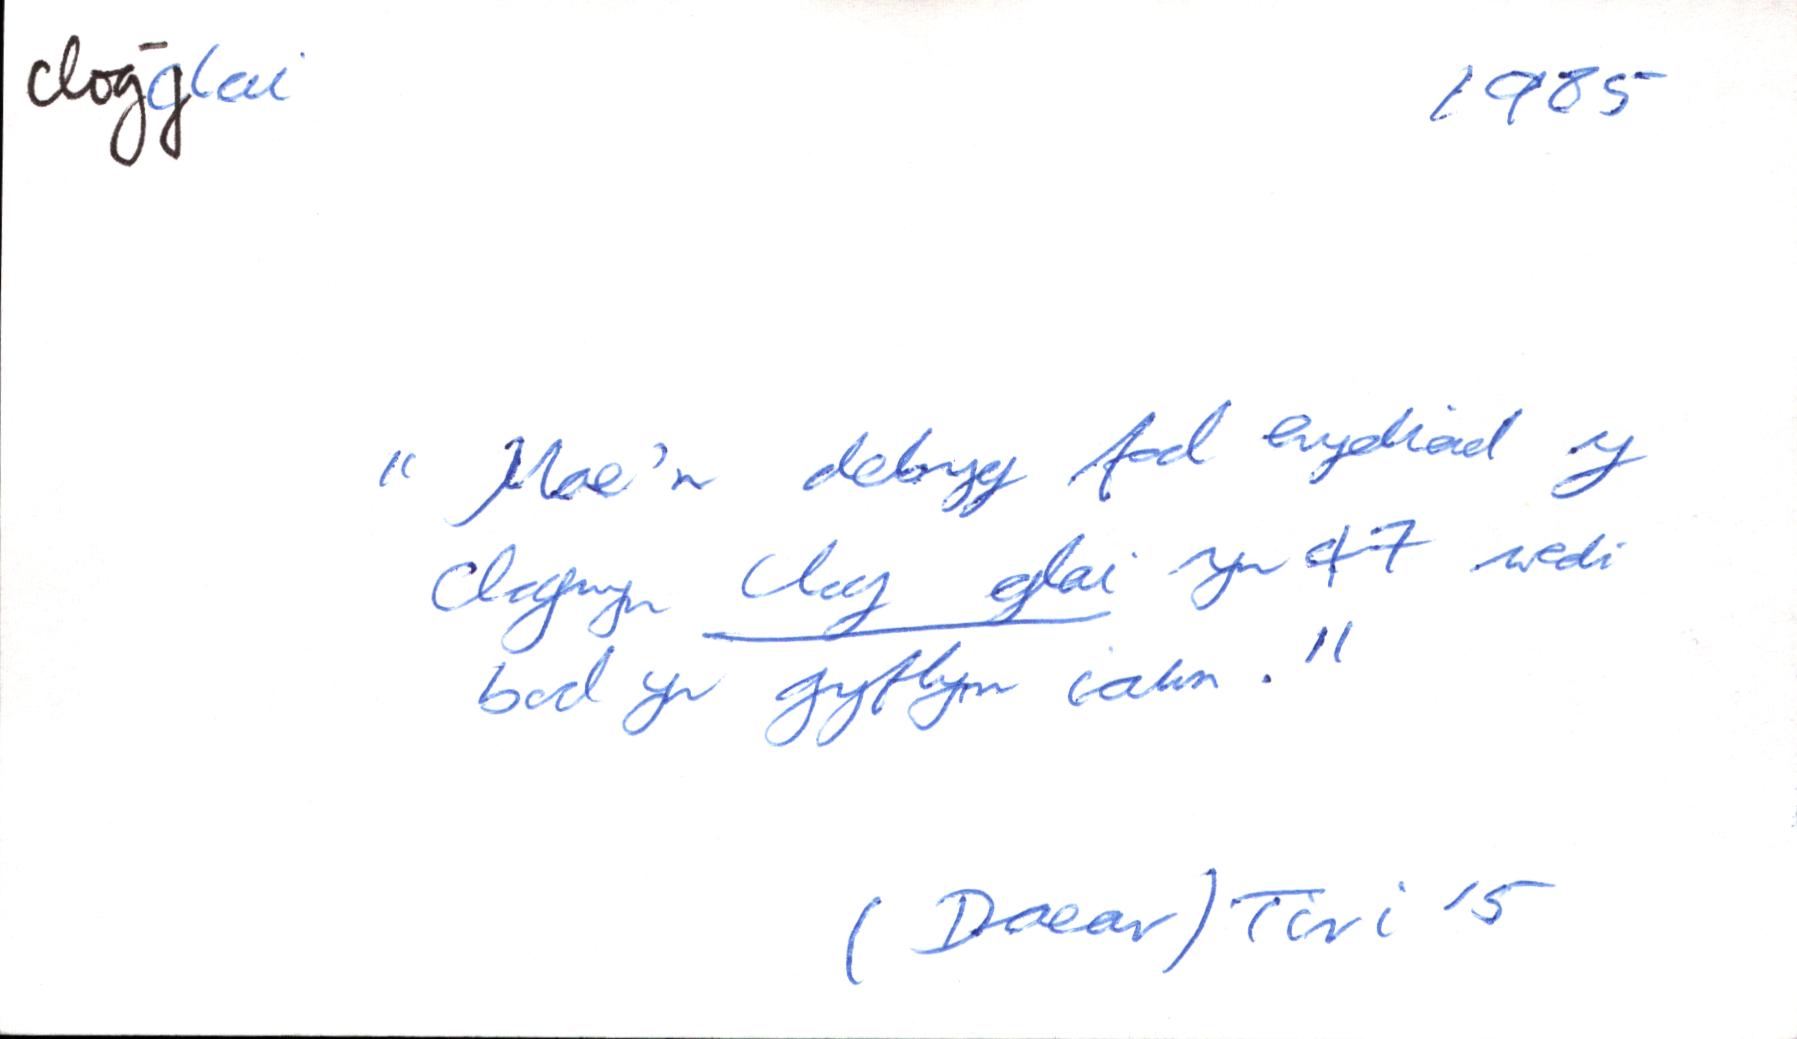 clog-glai 1985
"Mae'n debyg fod erydiad y
clogwyn clog glai yn 47 wedi
bod yn gyflym iawn."
(Daear) Tivi 15